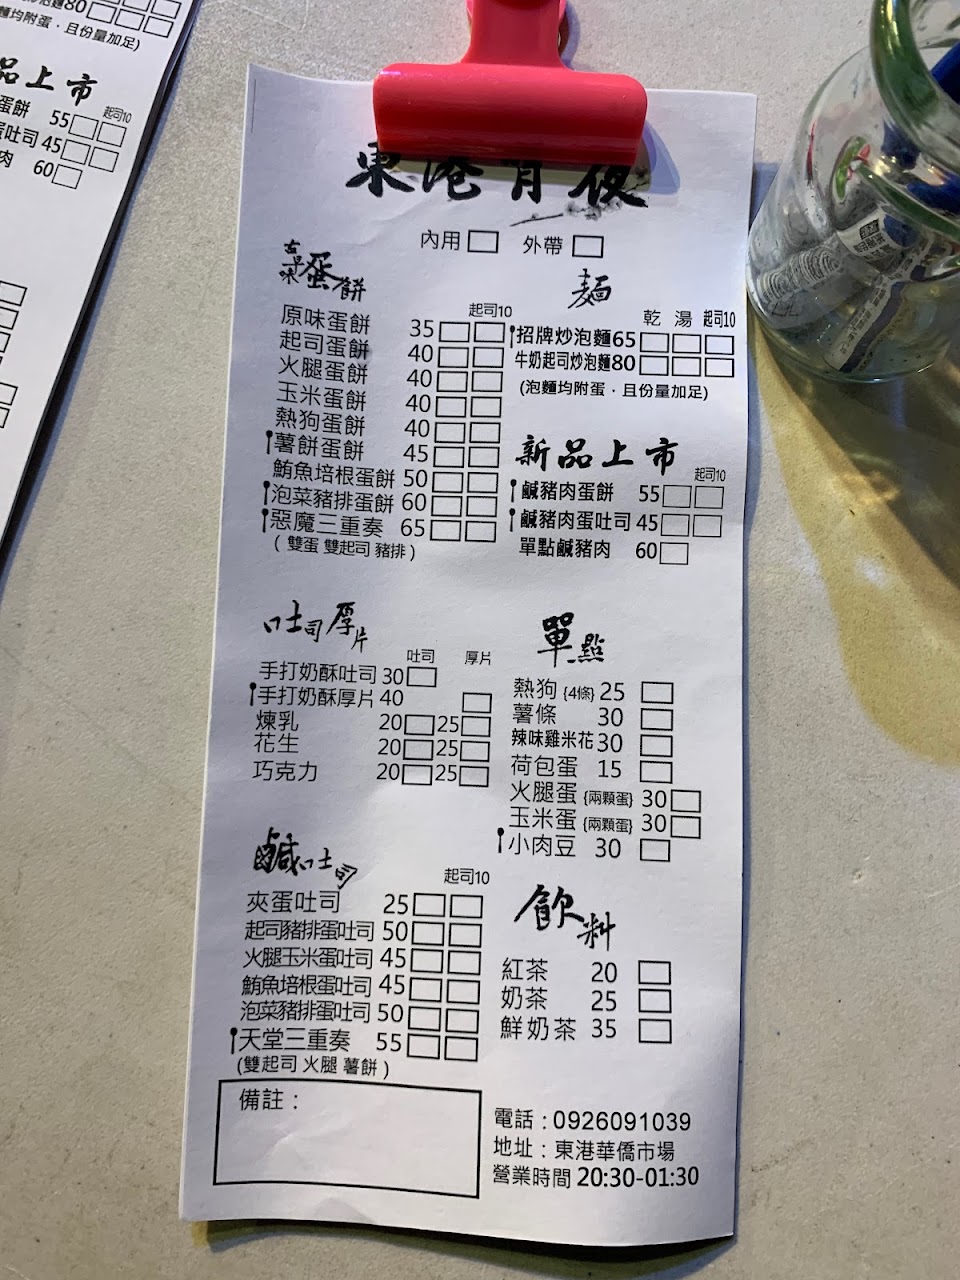 東港宵夜
內用 外帶
古早味蛋餅
起司10
原味蛋餅 35
起司蛋餅 40
火腿蛋餅 40
玉米蛋餅 40
熱狗蛋餅 40
薯餅蛋餅 45
鮪魚培根蛋餅 50
泡菜豬排蛋餅 60
惡魔三重奏 65
(雙蛋 雙起司 豬排)
麵
乾 湯 起司10
招牌炒泡麵65
牛奶起司炒泡麵80
(泡麵均附蛋．且份量加足)
新品上市
起司10
鹹豬肉蛋餅 55
鹹豬肉蛋吐司 45
單點鹹豬肉 60
吐司厚片
吐司 厚片
手打奶酥吐司 30
手打奶酥厚片 40
煉乳 20 25
花生 20 25
巧克力 20 25
單點
熱狗{4條} 25
薯條 30
辣味雞米花 30
荷包蛋 15
火腿蛋{兩顆蛋} 30
玉米蛋{兩顆蛋} 30
小肉豆 30
鹹吐司
起司10
夾蛋吐司 25
起司豬排蛋吐司 50
火腿玉米蛋吐司 45
鮪魚培根蛋吐司 45
泡菜豬排蛋吐司 50
天堂三重奏 55
(雙起司 火腿 薯餅)
飲料
紅茶 20
奶茶 25
鮮奶茶 35
備註：
電話：0926091039
地址：東港華僑市場
營業時間 20:30-01:30
80
麵均附蛋．且份量加足)
品上市
起司10
蛋餅 55
蛋吐司 45
肉 60